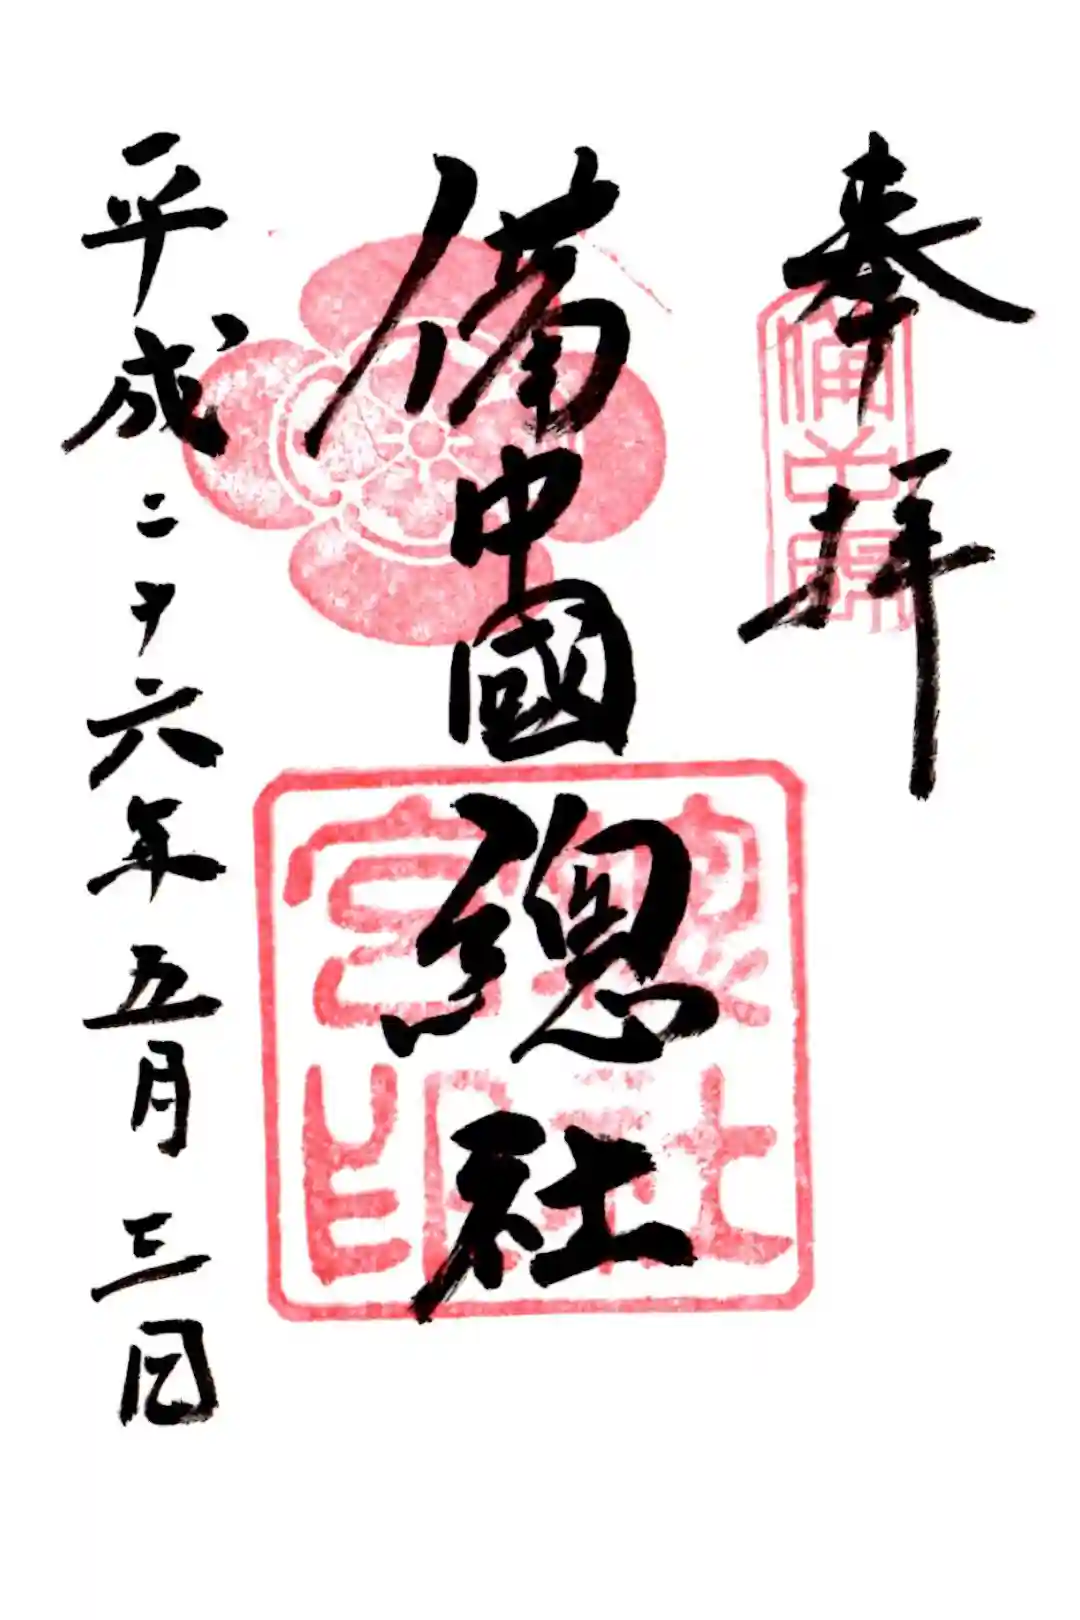 奉拝
備中國
備中國總社
總社宮印
平成二十六年五月三日